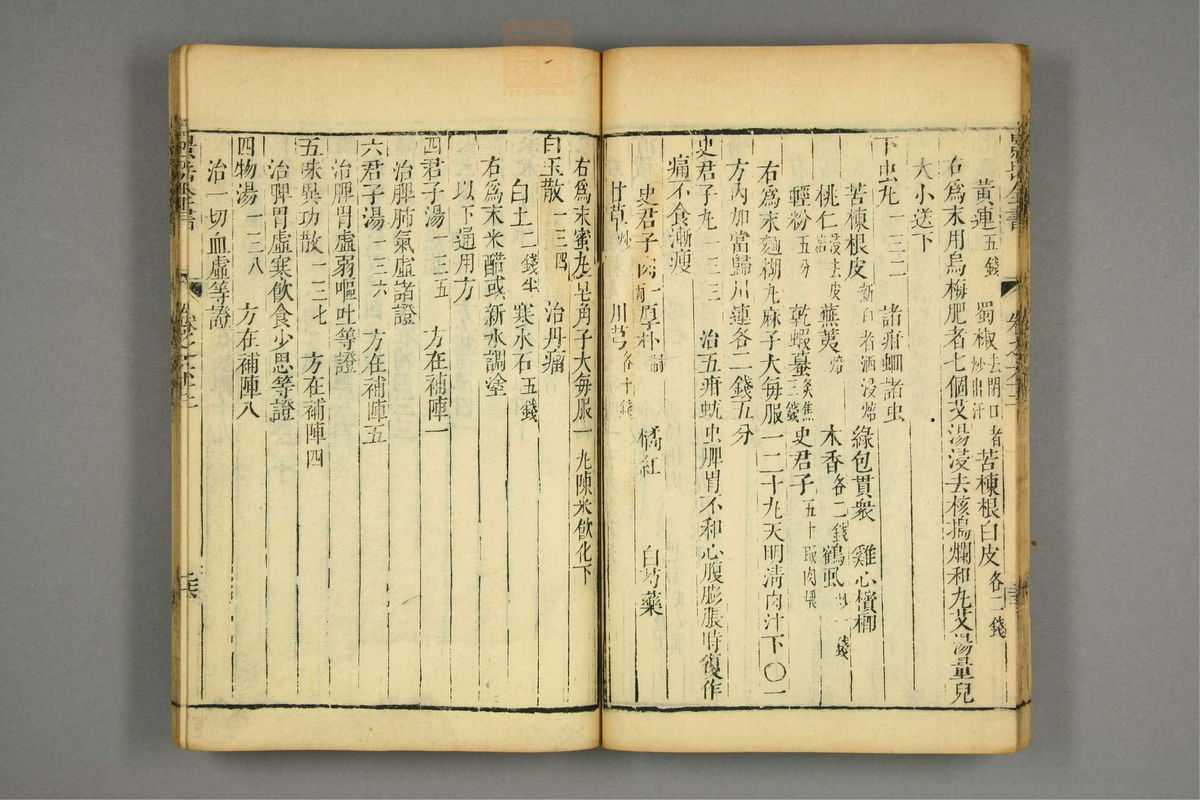 黃連五錢 蜀椒去閉口者炒出汗 苦楝根白皮各二錢
右爲末用烏梅肥者七個艾湯浸去核搗爛和丸艾湯量兒
大小送下
下虫丸一三二 諸疳蛔諸虫
苦楝根皮新白者酒浸焙 綠包貫衆 雞心檳榔
桃仁浸去皮焙 蕪荑焙 木香各二錢 鶴虱炒一錢
輕粉五分 乾蝦蟇炙焦三錢 史君子五十取肉煨
右爲末麵糊丸麻子大每服一二十丸天明淸肉汁下〇一
方內加當歸川連各二錢五分
史君子丸一三三 治五疳蚘虫脾胃不和心腹膨脹時復作
痛不食漸瘦
史君子肉一兩 厚朴 橘紅 白芍藥
甘草炒 川芎各一錢
右爲末蜜丸皂角子大每服一丸陳米飮化下
白玉散一三四 治丹瘤
白土二錢半 寒水石五錢
右爲末米醋或新水調塗
以下通用方
四君子湯一三五 方在補陣一
治脾肺氣虛諸證
六君子湯一三六 方在補陣五
治脾胃虛弱嘔吐等證
五味異功散一三七 方在補陣四
治脾胃虛寒飮食少思等證
四物湯一三八 方在補陣八
治一切血虛等證